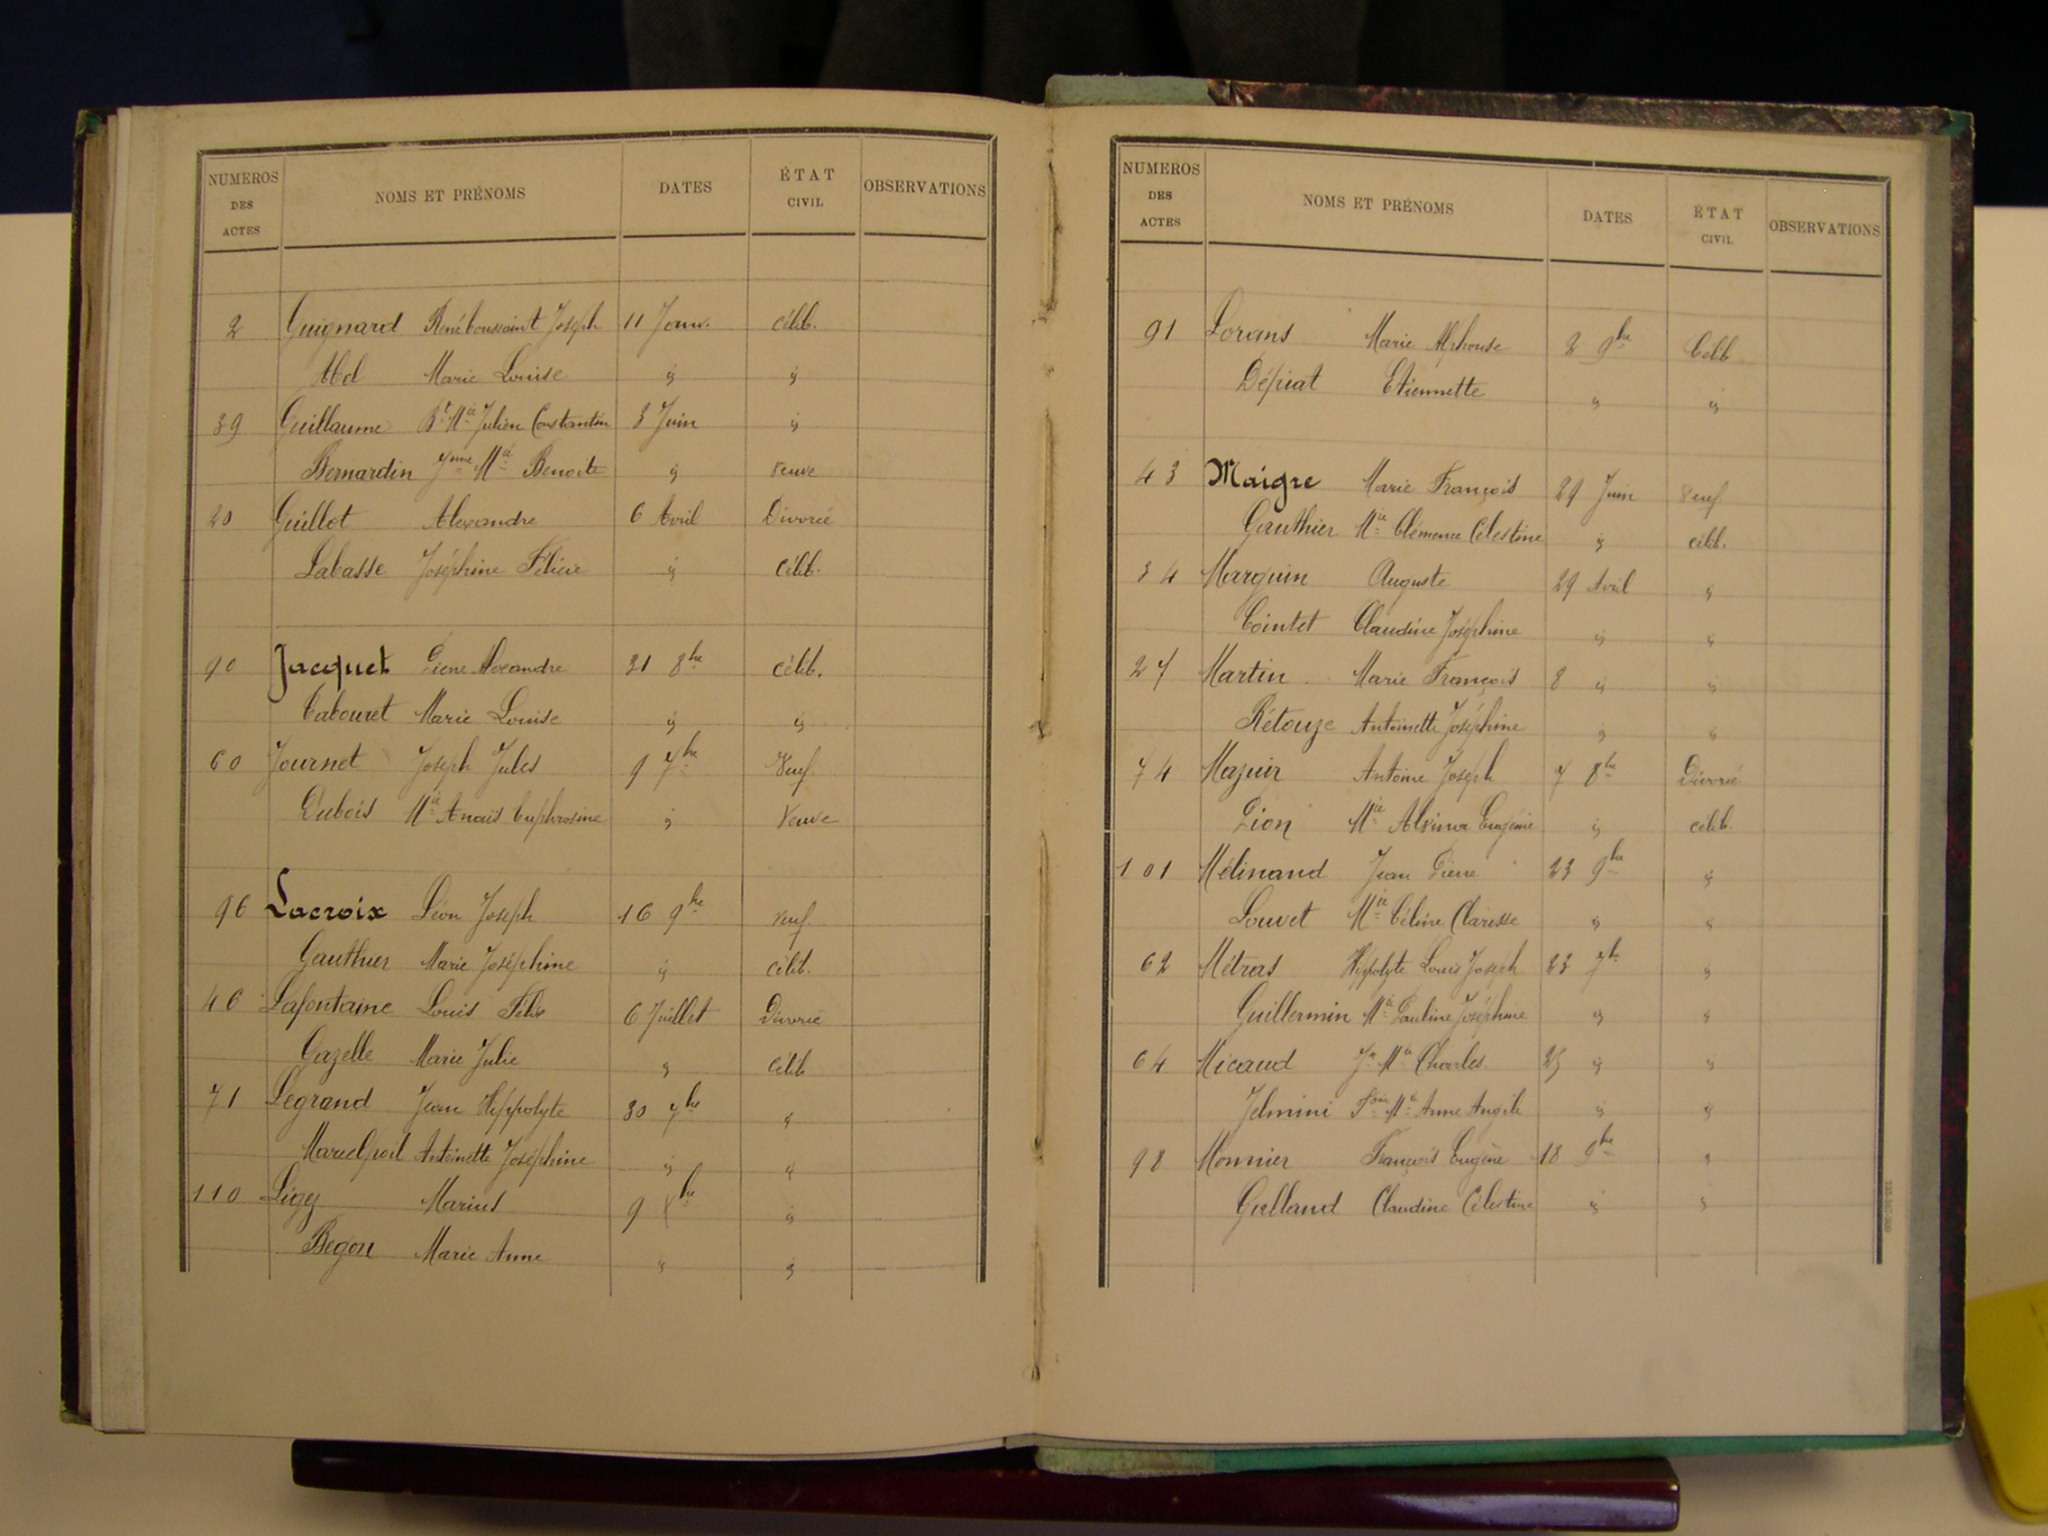 NUMEROS DES ACTES NOMS ET PRÉNOMS DATES ÉTAT CIVIL OBSERVATIONS
2 Guignard René Toussaint Joseph 11 Janv. Célib.
Abel Marie Louise " "
39 Guillaume Bt Mie Julien Constantin 3 Juin "
Bernardin Mie Benoite " Veuve
20 Guillot Alexandre 6 Avril Divorcé
Labasse Joséphine Félicie " Célib.
90 Jacquet Pierre Alexandre 31 8bre Célib.
Cabouret Marie Louise " "
60 Journet Joseph Jules 9 7bre Veuf
Dubois Mie Anaïs Euphrosine " Veuve
96 Lacroix Léon Joseph 16 9bre Veuf
Gauthier Marie Joséphine " Célib.
46 Lafontaine Louis Félix 6 Juillet Divorcé
Gazelle Marie Julie " Célib
71 Legrand Jean Hippolyte 30 7bre "
Marielpoil Antoinette Joséphine " "
110 Ligy Marius 9 Xbre "
Begon Marie Anne " "
NUMEROS DES ACTES NOMS ET PRÉNOMS DATES ÉTAT CIVIL OBSERVATIONS
91 Lorans Marie Alphonse 2 9bre Célib
Dépirat Etiennette " "
43 Maigre Marie François 29 Juin Veuf
Gauthier Mie Clémence Célestine " Célib.
34 Marquin Auguste 29 Avril "
Cointet Claudine Joséphine " "
27 Martin Marie François 8 " "
Rétouze Antoinette Joséphine " "
74 Mazuir Antoine Joseph 7 8bre Divorcé
Pion Mie Alxina Eugénie " Célib.
101 Mélinand Jean Pierre 23 9bre "
Louvet Mie Céline Clarisse " "
62 Métras Hippolyte Louis Joseph 23 7bre "
Guillermin Mie Pauline Joséphine " "
64 Micaud Jn Mie Charles 25 " "
Jelmini Mie Anne Angèle " "
98 Monnier François Eugène 18 9bre "
Galland Claudine Célestine " "